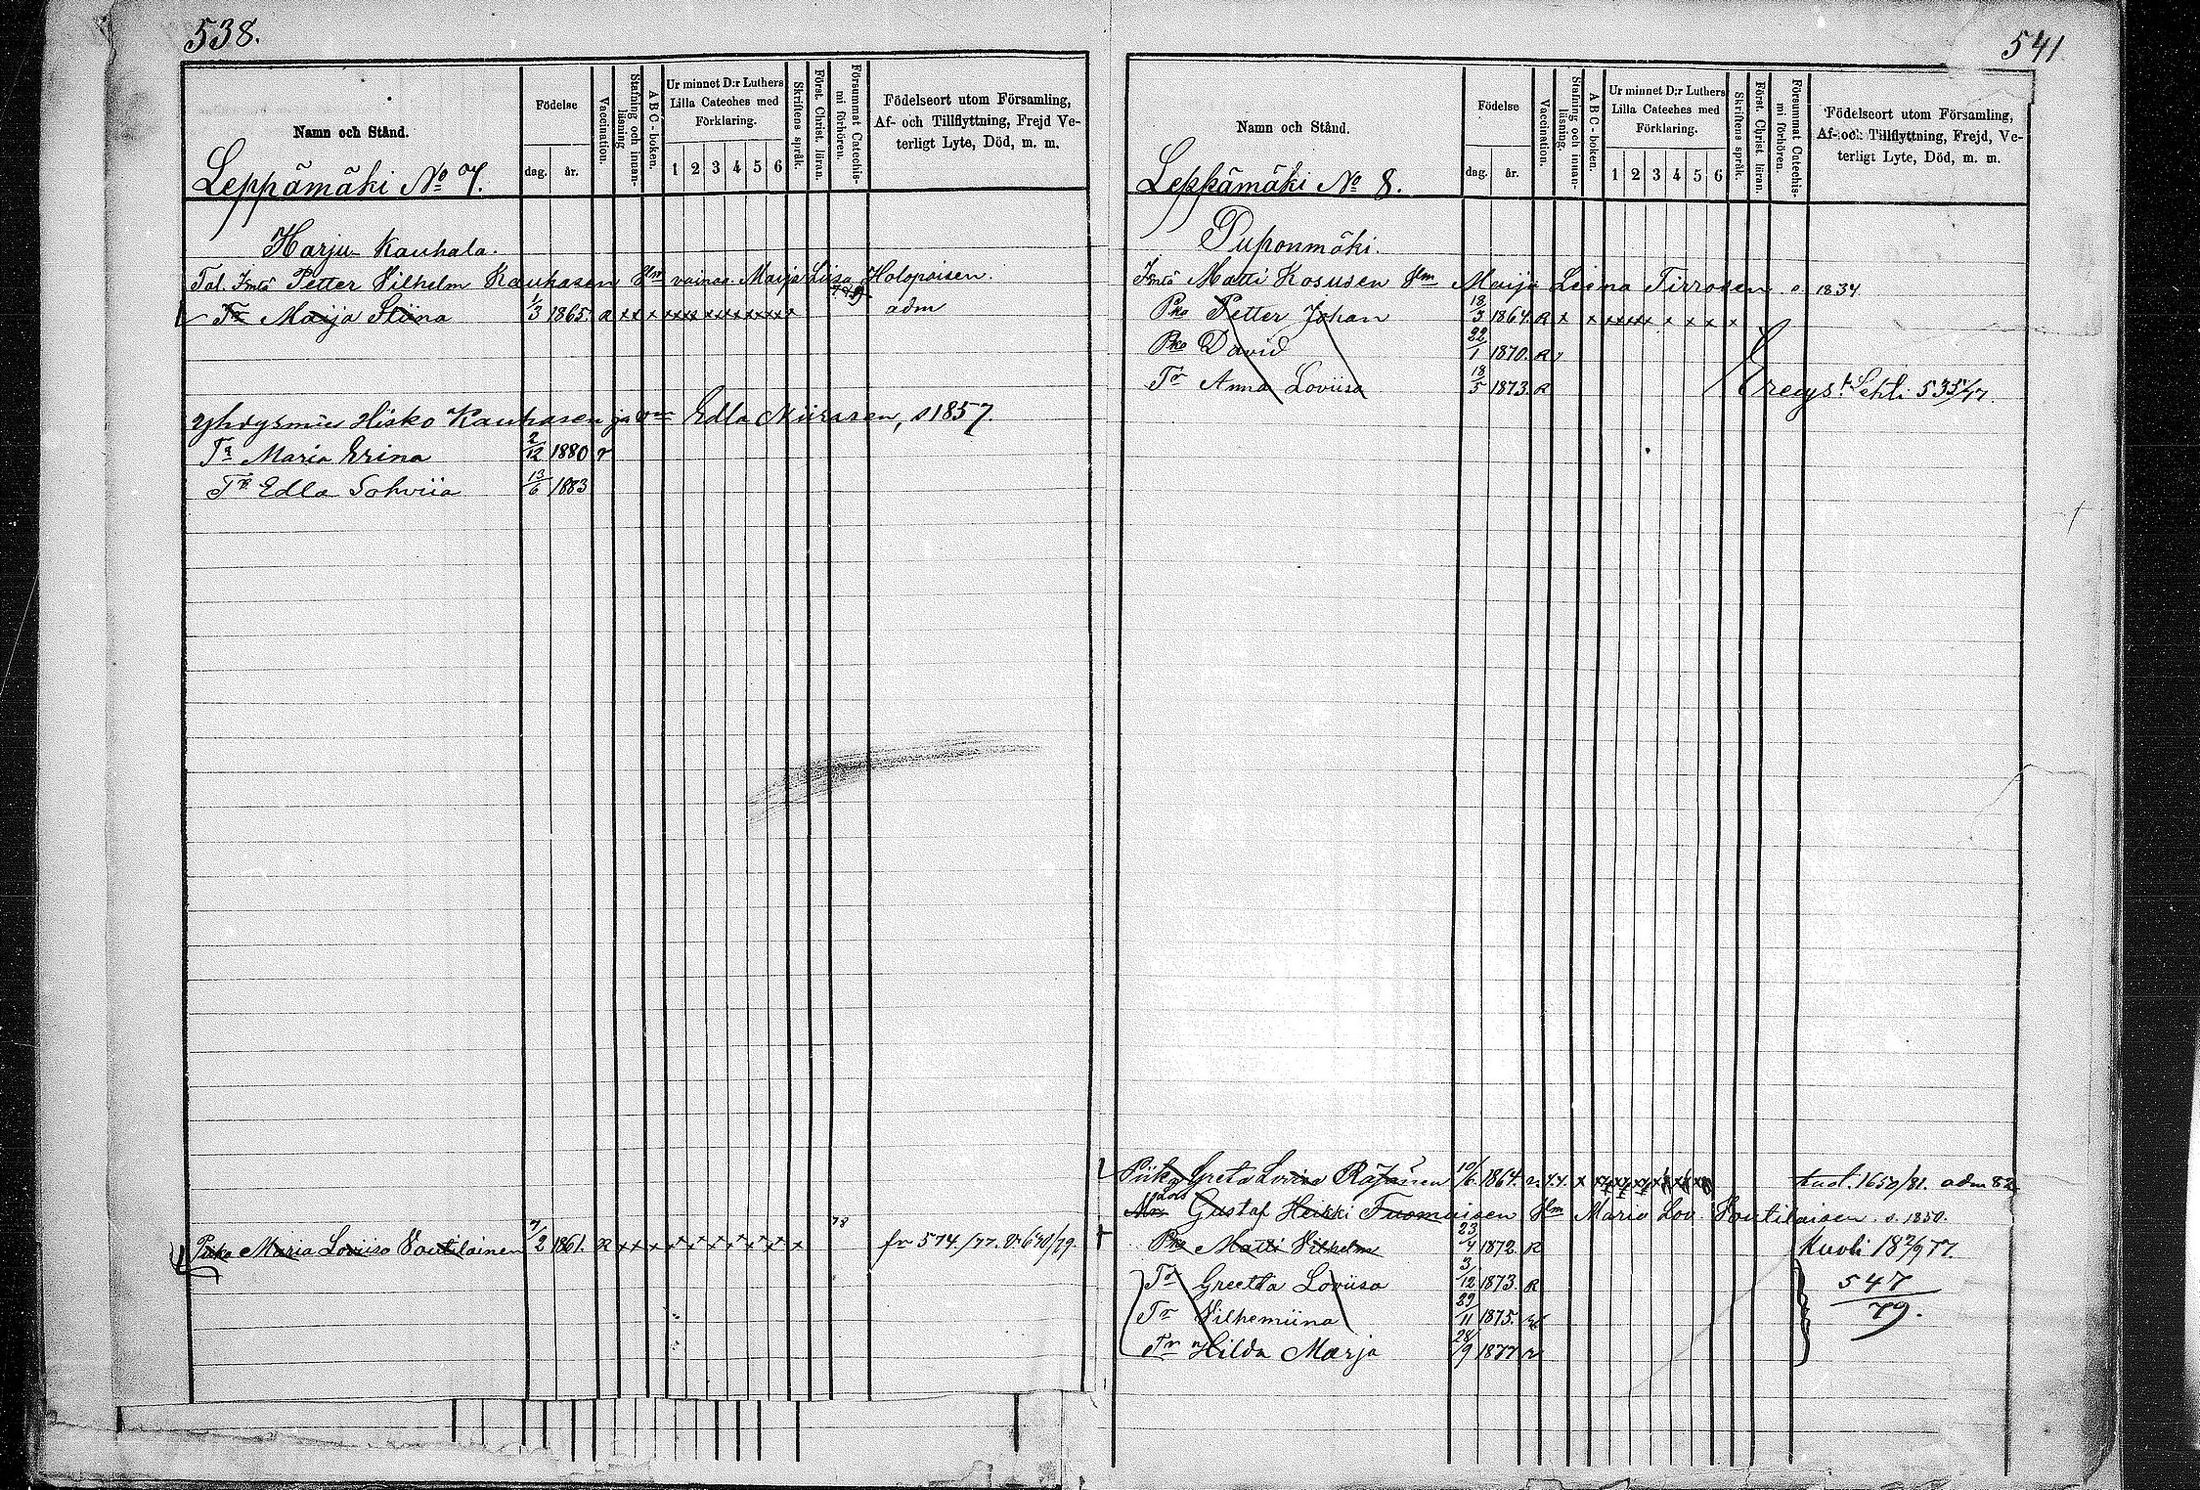 538.
Namn och Stånd.
Födelse
dag. år.
Vaccination.
Stafning och innan-läsning
A B C - boken.
Ur minnet D:r Luthers Lilla Cateches med Förklaring.
1 2 3 4 5 6
Skriftens språk.
Först. Christ. läran.
Försummat Catechis-mi förhören.
Födelseort utom Församling, Af- och Tillflyttning, Frejd Ve-terligt Lyte, Död, m. m.
Leppämäki No 7.
Harju Kauhala.
Tal. Petter Vilhelm Kauhasen vainaa Maija Liisa Holopaisen.
Tr Maija Stiina 1/3 1865. a x x x x x x x x x x x x adm
Yhdysmies Hisko Kauhasen ja vmo Edla Niirasen, s 1857.
Tr Maria Erina 2/12 1880 r
Tr Edla Sohviia 13/6 1883
Piika Maria Loviisa Voutilainen 7/2 1861. R x x x x x x x x x x 78 fr 574/77.
541
Namn och Stånd.
Födelse
dag. år.
Vaccination.
Stafning och innan-läsning.
A B C - boken.
Ur minnet D:r Luthers Lilla Cateches med Förklaring.
1 2 3 4 5 6
Skriftens språk.
Först. Christ. läran.
Försummat Catechis-mi förhören.
Födelseort utom Församling, Af- och Tillflyttning, Frejd, Ve-terligt Lyte, Död, m. m.
Leppämäki No 8.
Puponmäki.
Matti Kosusen Maija Leena Tirrosen s. 1834
Pka Petter Johan 18/3 1864. R x x x x x x x x x x
Pka David 22/1 1870. R
Tr Anna Loviisa 18/5 1873. R
535/77.
Piika Greta Loviisa Räsänen 10/6 1864. 1650/81. adm 82
Gustaf Heikki Tuomaisen Maria Lov. Voutilaisen s. 1850.
Pka Matti Vilhelm 23/4 1872. R Kuoli 18 2/9 77.
Tr Greetta Loviisa 3/12 1873. R 547/79.
Tr Vilhemiina 29/11 1875.
Tr Hilda Marja 28/9 1877. r